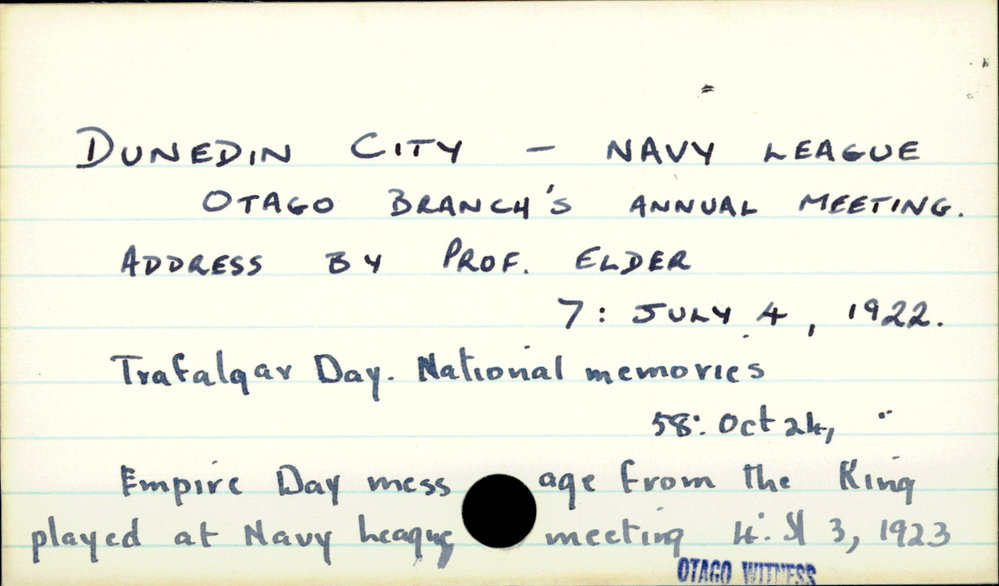 DUNEDIN CITY - NAVY LEAGUE
OTAGO BRANCH'S ANNUAL MEETING.
ADDRESS BY PROF. ELDER
7: JULY 4, 1922.
Trafalgar Day. National memories
58: Oct 24, "
Empire Day mess age from the King
played at Navy League meeting 4: Jl 3, 1923
OTAGO WITNESS